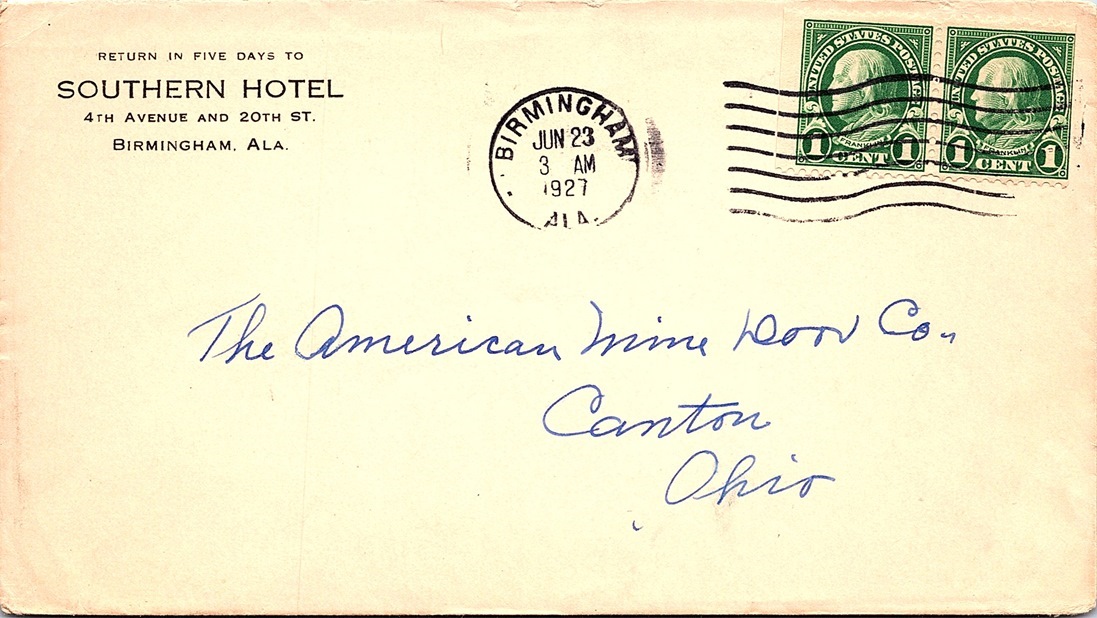 RETURN IN FIVE DAYS TO
SOUTHERN HOTEL
4TH AVENUE AND 20TH ST.
BIRMINGHAM, ALA.
BIRMINGHAM
JUN 23
3 AM
1927
ALA.
UNITED STATES POSTAGE
FRANKLIN
1 CENT 1
UNITED STATES POSTAGE
FRANKLIN
1 CENT 1
The American Mine Door Co.
Canton
Ohio